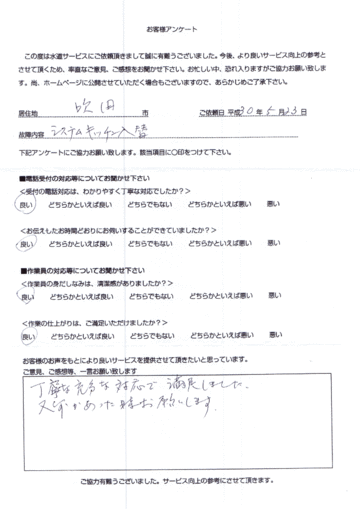 お客様アンケート
この度は水道サービスにご依頼頂きまして誠に有難うございました。今後、より良いサービス向上の参考と
させて頂くため、率直なご意見、ご感想をお聞かせ下さい。お忙しい中、恐れ入りますがご協力お願い致しま
す。尚、ホームページに公開させていただく場合もございますので、あらかじめご了承下さい。
居住地 吹田 市 ご依頼日 平成30年5月23日
故障内容 システムキッチン入替
下記アンケートにご協力お願い致します。該当項目に〇印をつけて下さい。
■電話受付の対応等についてお聞かせ下さい
<受付の電話対応は、わかりやすく丁寧な対応でしたか?>
良い どちらかといえば良い どちらでもない どちらかといえば悪い 悪い
<お伝えしたお時間どおりにお伺いすることができていましたか?>
良い どちらかといえば良い どちらでもない どちらかといえば悪い 悪い
■作業員の対応等についてお聞かせ下さい
<作業員の身だしなみは、清潔感がありましたか?>
良い どちらかといえば良い どちらでもない どちらかといえば悪い 悪い
<作業の仕上がりは、ご満足いただけましたか?>
良い どちらかといえば良い どちらでもない どちらかといえば悪い 悪い
お客様のお声をもとにより良いサービスを提供させて頂きたいと思っています。
ご意見、ご感想等、一言お願い致します
丁寧な 対応で 満足しました。
又何かあった時お願いします。
ご協力有難うございました。サービス向上の参考にさせて頂きます。